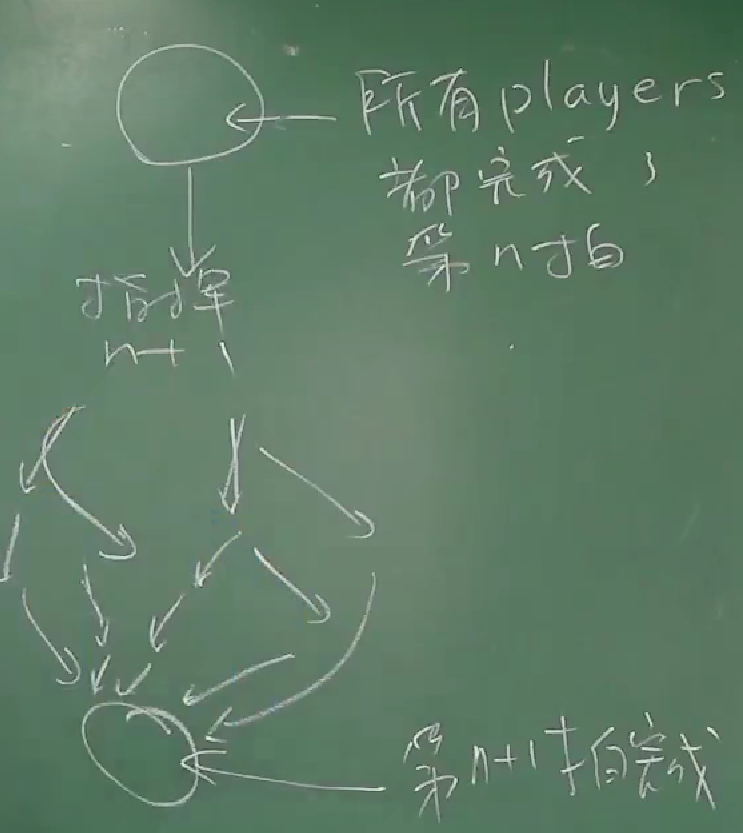 所有players
都完成了
第n拍
指挥
n+1
第n+1拍完成